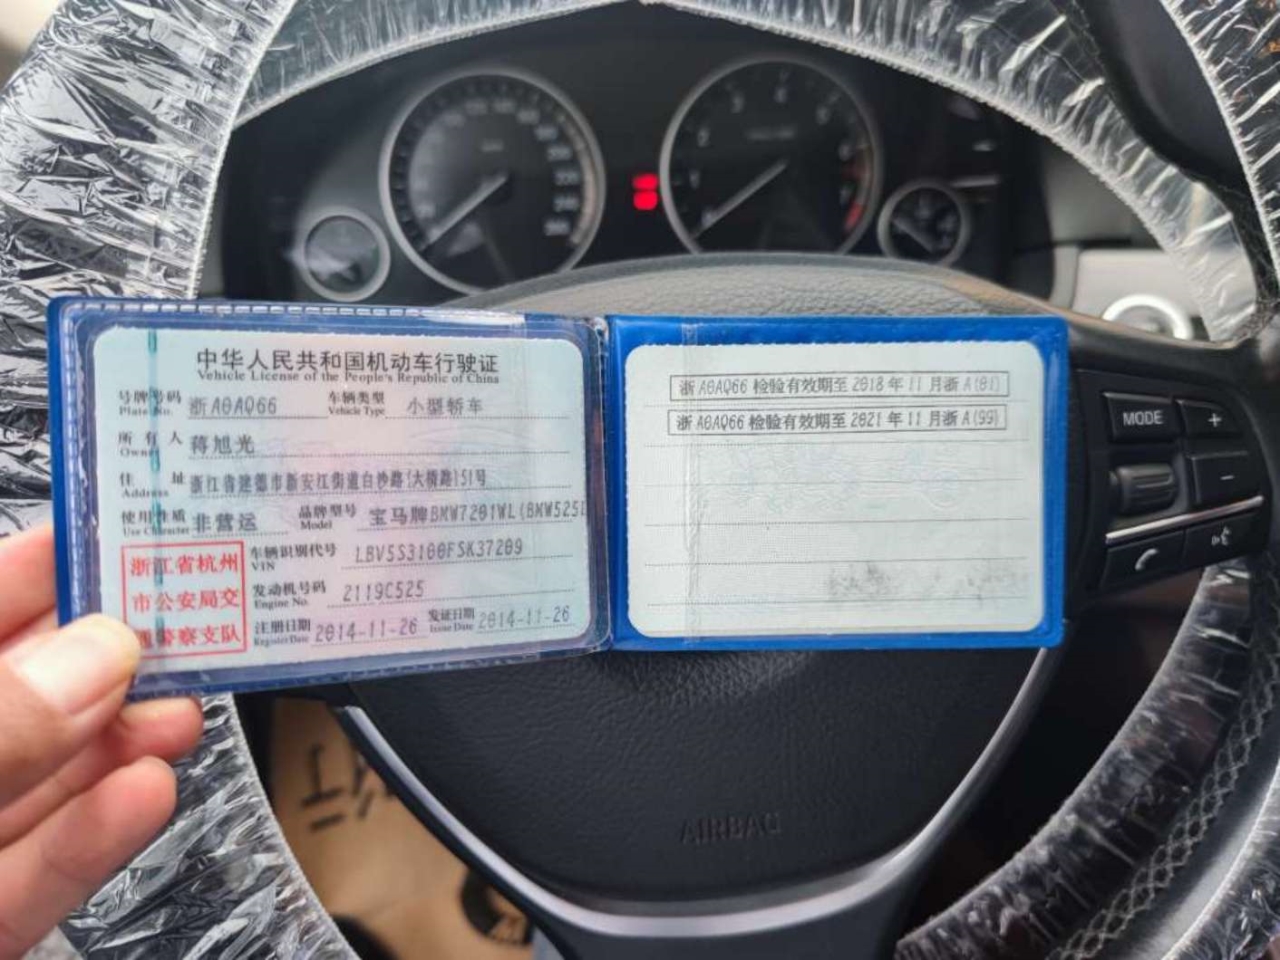 中华人民共和国机动车行驶证
Vehicle License of the People's Republic of China
号牌号码 浙A0AQ66 车辆类型 小型轿车
Plate No. Vehicle Type
所有人 蒋旭光
Owner
住址 浙江省建德市新安江街道白沙路(大桥路)151号
Address
使用性质 非营运 品牌型号 宝马牌BMW7201WL(BMW525L
Use Character Model
浙江省杭州
市公安局交
警察支队
车辆识别代号 LBV5S3100FSK37209
VIN
发动机号码 2119C525
Engine No.
注册日期 2014-11-26 发证日期 2014-11-26
Register Date Issue Date
浙A0AQ66 检验有效期至 2018 年 11 月浙 A(01)
浙A0AQ66 检验有效期至 2021 年 11 月浙 A(99)
MODE
+
-
AIRBAG